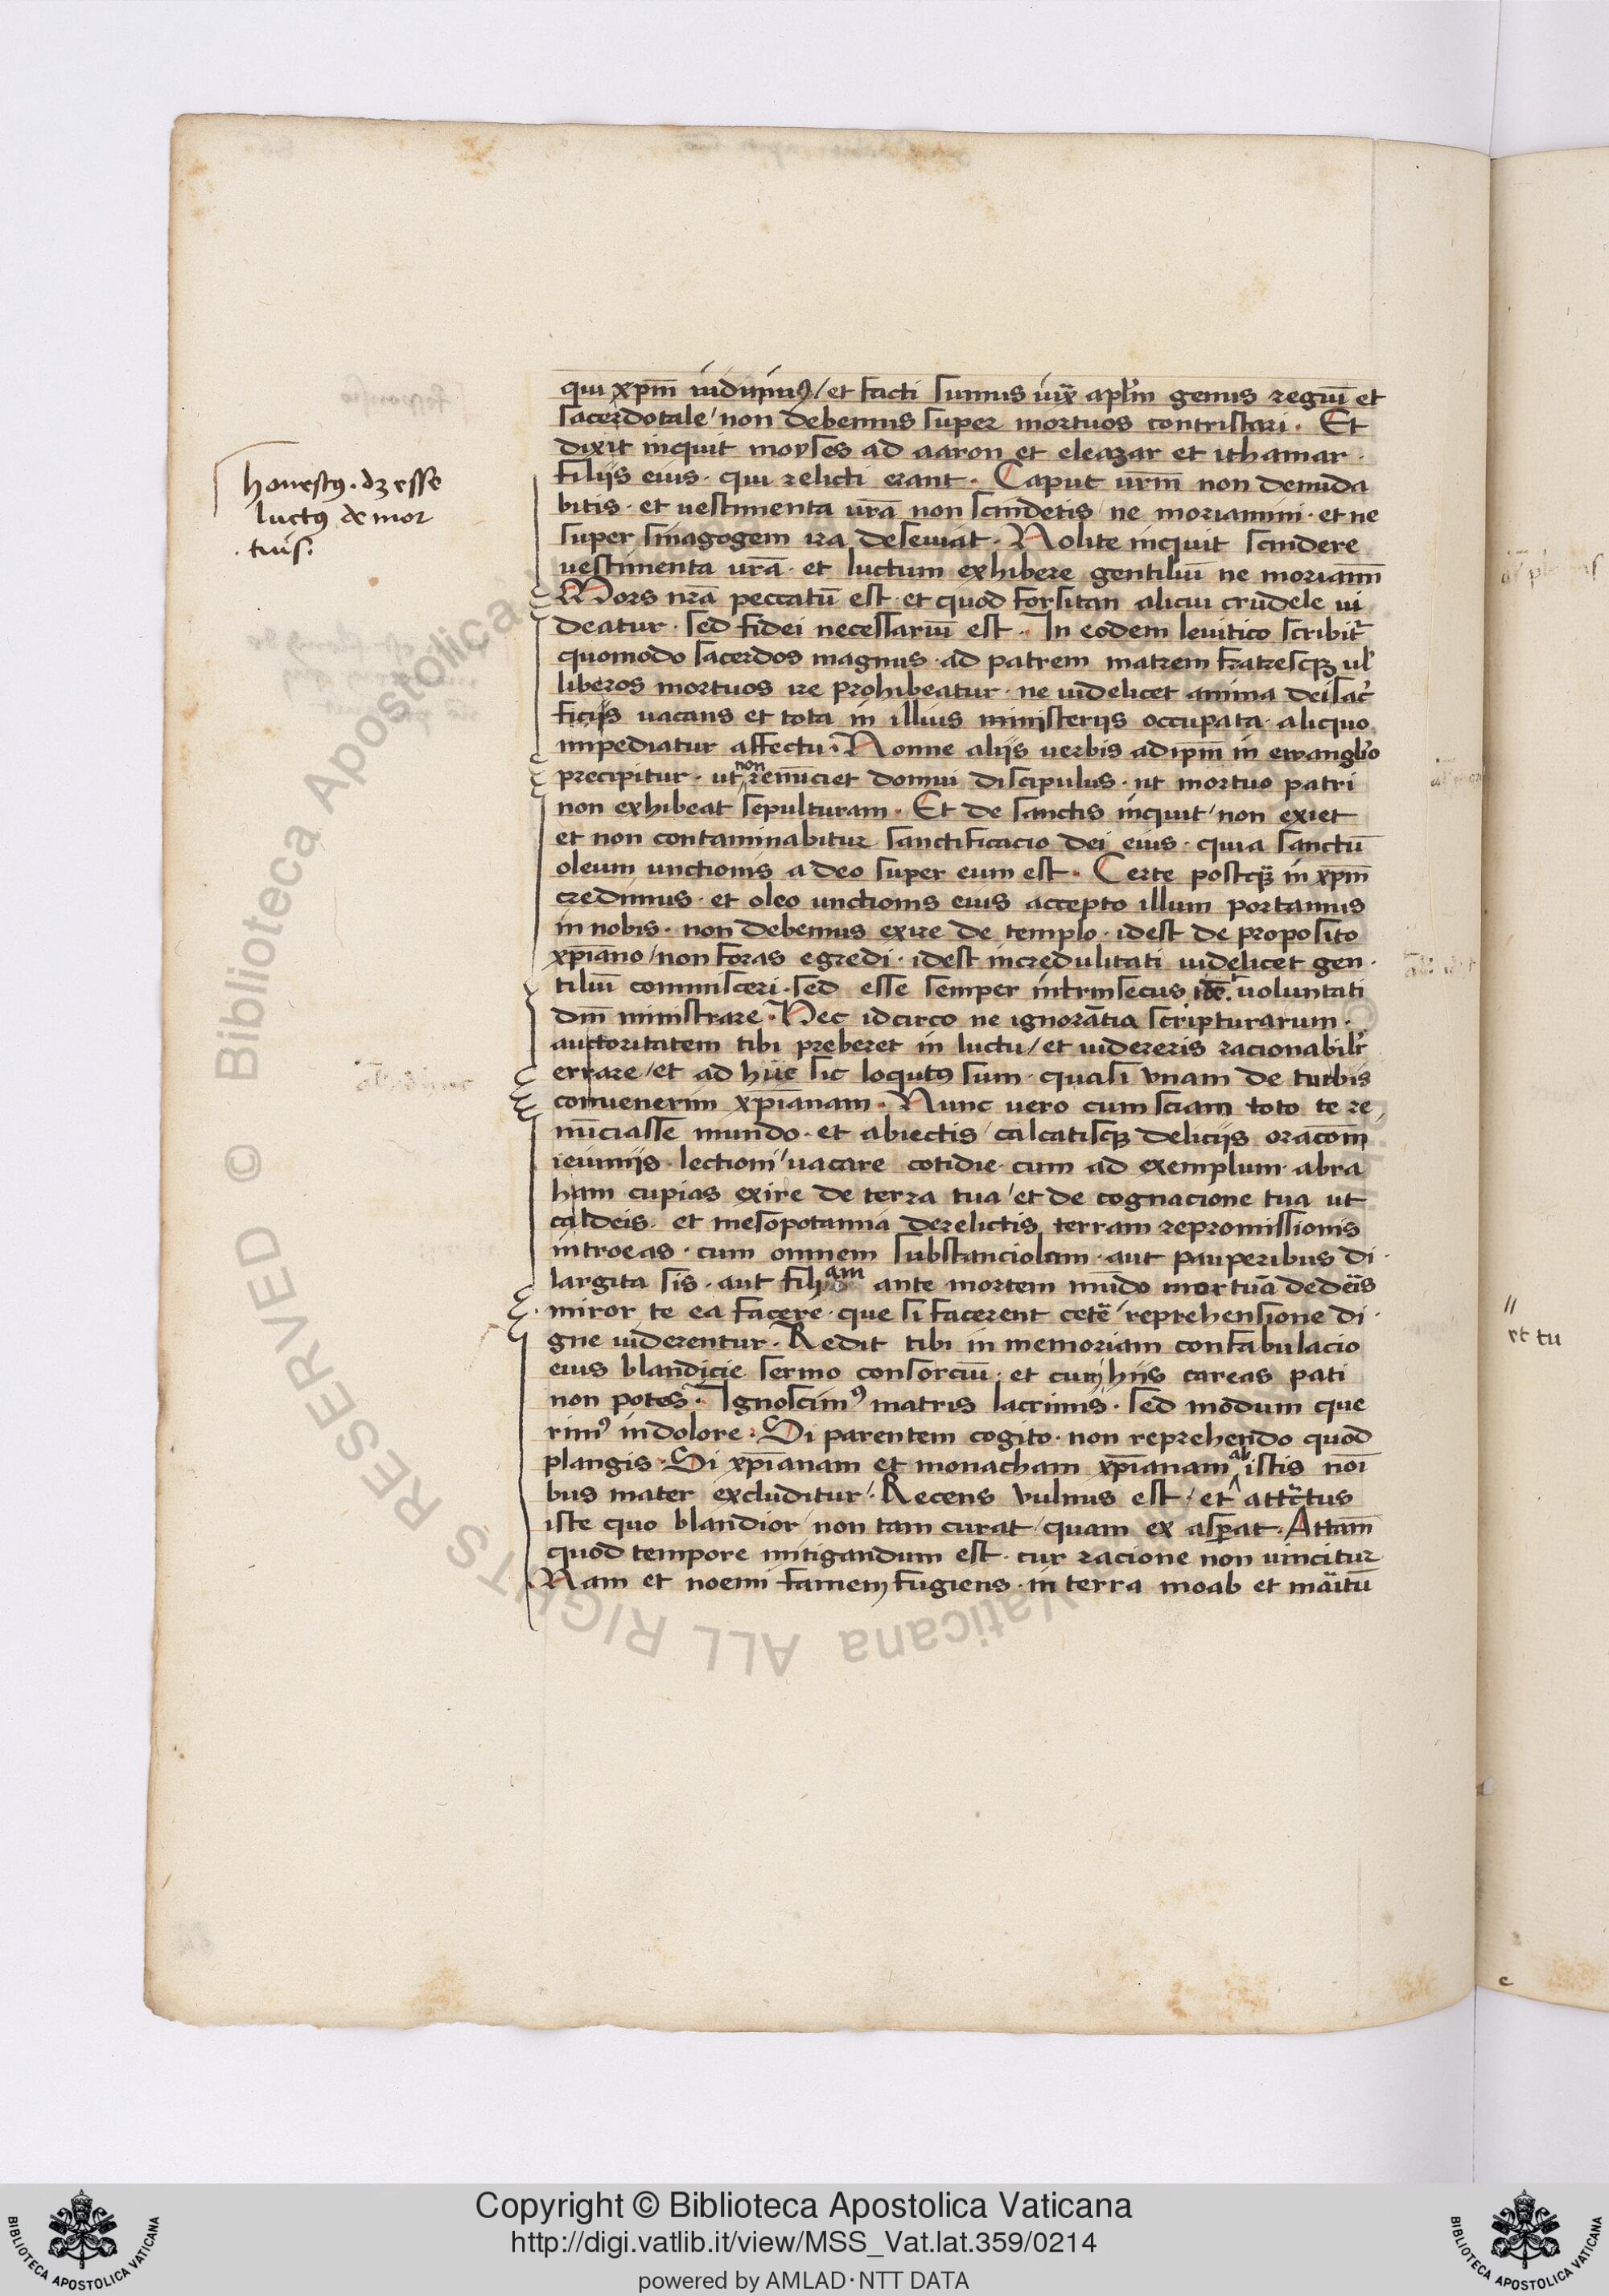 qui xp̄m induimus / et facti sumus iuxͣ aplꝫm genus regiū et
sacerdotale / non debemus super mortuos contristari · Et
dixit inquit moyses ad aaron et eleazar et ithamar ·
filijs eius · qui relicti erant · Caput vr̄m non denuda
bitis · et uestimenta vr̄a non scindetis / ne moriamini · et ne
super sinagogem ira deseuiat · Nolite inquit scindere
uestimenta vr̄a · et luctum exhibere gentiliū ne moriam̄
Mors nr̄a peccatū est · et quod forsitan alicui crudele ui
deatur · sed fidei necessariū est · In eodem leuitico scribit᷑
quomodo sacerdos magnus · ad patrem matrem fratresqꝫ ul̉
liberos mortuos ire prohibeatur · ne uidelicet anima dei sac̉
ficijs uacans et tota in illius ministerijs occupata · aliquo
impediatur affectu · Nonne alijs uerbis ad ip̄m in ewangl̉o
precipitur · ut non renūciet domui discipulus · ut mortuo patri
non exhibeat sepulturam · Et de sanctis inquit / non exiet
et non contaminabitur sanctificacio dei eius · quia sanctū
oleum unctionis a deo super eum est · Certe postqͣ in xp̄m
credimus · et oleo unctionis eius accepto illum portamus
in nobis · non debemus exire de templo · idest de proposito
xp̄iano / non foras egredi · idest incredulitati uidelicet gen ·
tiliū commisceri · sed esse semper intrinsecus idē · uoluntati
dm̄ ministrare · Hec idcirco ne ignorātia scripturarum ·
auctoritatem tibi preberet in luctu / et uidereris racionabilr̉
errare / et ad huc sic loqutꝰ sum · quasi vnam de turbis
conuenerim xp̄ianam · Nunc uero cum sciam toto te re
nūciasse mundo · et abiectis / calcatisqꝫ delicijs orac̄om
ieiunijs · lectioni / uacare cotidie · cum ad exemplum · abra
ham cupias exire de terra tua / et de cognacione tua ut
caldeis · et mesopotamia derelictis terram repromissionis
introeas · cum omnem substanciolam · aut pauperibus di ·
largita sis · aut filiam ante mortem mūdo mortuā dedeͥs
· miror te ea facere · que si facerent ceteͤ / reprehensione di ·
gne uiderentur · Redit tibi in memoriam confabulacio
eius blandicie sermo consorciū · et cum hijs careas pati
non potes · Ignoscimꝰ matris lacrimis · sed modum que
rimꝰ in dolore · Si parentem cogito · non reprehendo quod
plangis · Si xp̄ianam et monacham xp̄ianam ab istis noi̅
bus mater excluditur · Recens vulnus est · et attc̉tus
iste quo blandior / non tam curat / quam ex asꝑat · Attam̄
quod tempore mitigandum est · cur racione non uincitur
Nam et noemi famem fugiens · in terra moab et maͥitū
honestꝰ · dꝫ esse
luctꝰ de mor
· tuis ·
et tu
© Biblioteca Apostolica Vaticana ALL RIGHTS RESERVED
Copyright © Biblioteca Apostolica Vaticana
http://digi.vatlib.it/view/MSS_Vat.lat.359/0214
powered by AMLAD·NTT DATA
BIBLIOTECA APOSTOLICA VATICANA
BIBLIOTECA APOSTOLICA VATICANA